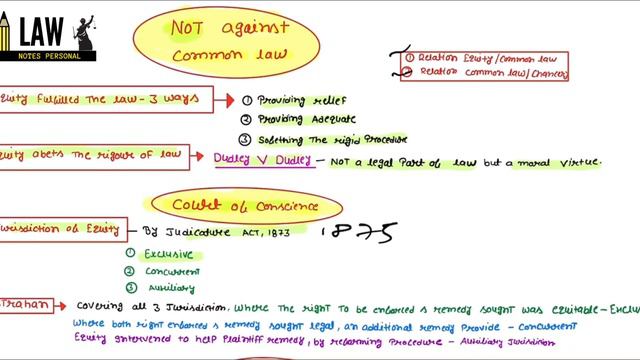 LAW
NOTES PERSONAL
NOT against
Common law
① Relation Equity/Common law
② Relation Common law/Chancery
Equity fulfilled The law - 3 ways
① Providing relief
② Providing Adequate
③ Sobething The rigid Procedure
Equity abets The rigour of law
Dudley V Dudley - NOT a legal Part of law but a moral Virtue.
Court of Conscience
Jurisdiction of Equity - By Judicature ACT, 1873 1875
① Exclusive
② Concurrent
③ Auxiliary
Strahan
Covering all 3 Jurisdiction. Where The right To be enforced & remedy sought was equitable - Exclus
Where both right enforced & remedy sought legal, an additional remedy Provide - Concurrent
Equity intervened to help Plaintiff remedy, by reforming Procedure - Auxiliary Jurisdiction